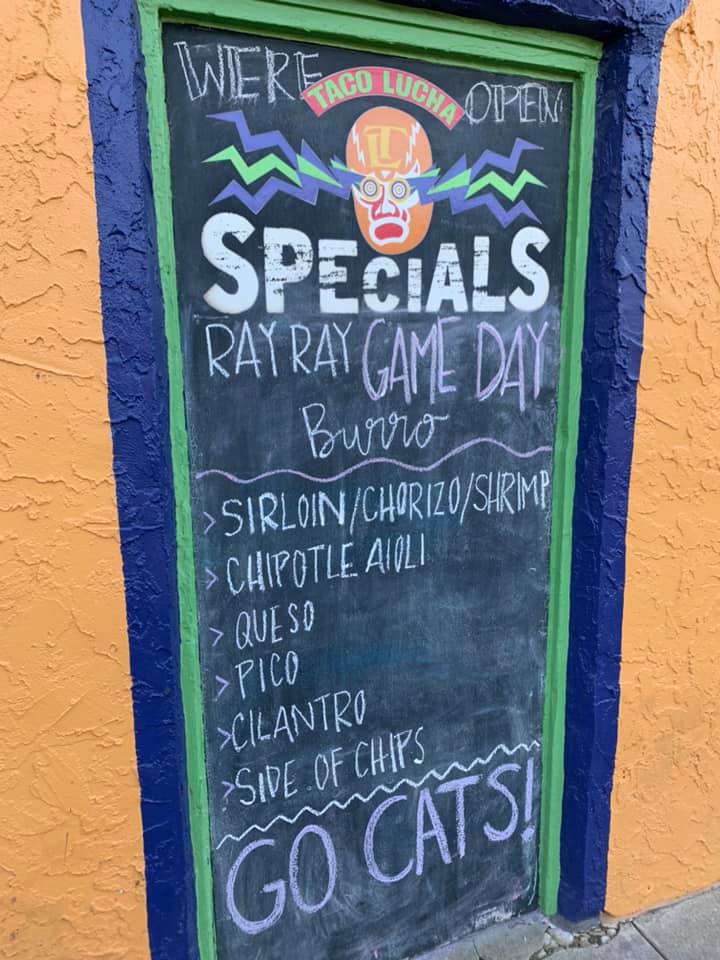 WERE OPEN
TACO LUCHA
LT
SPECIALS
RAY RAY GAME DAY
Burro
> SIRLOIN/CHORIZO/SHRIMP
> CHIPOTLE AIOLI
> QUESO
> PICO
> CILANTRO
> SIDE OF CHIPS
GO CATS!